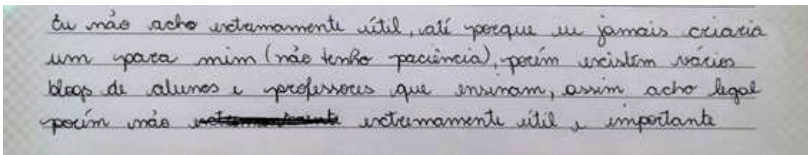 Eu não acho extremamente útil, até porque eu jamais criaria
um para mim (não tenho paciência), porém existem vários
blogs de alunos e professores que ensinam, assim acho legal
porém não extremamente útil e importante